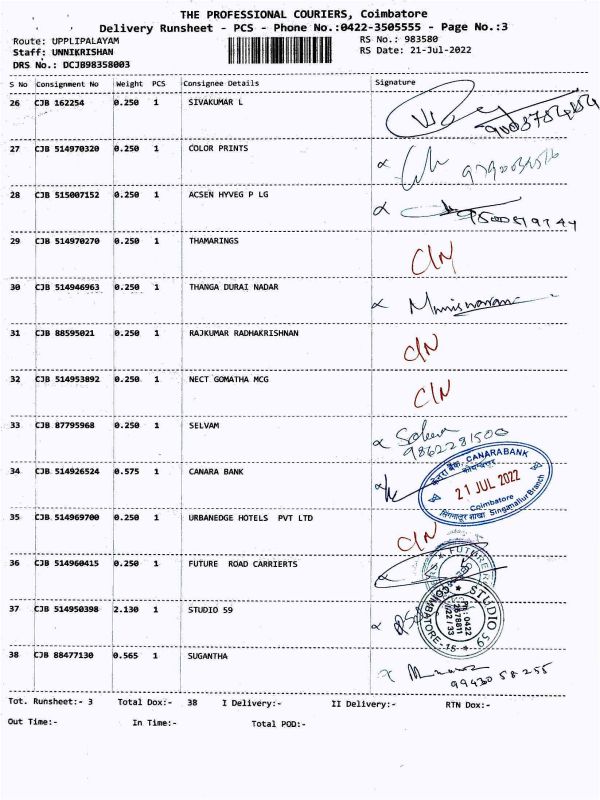 THE PROFESSIONAL COURIERS, Coimbatore
Delivery Runsheet - PCS - Phone No.:0422-3505555 - Page No.:3
Route: UPPLIPALAYAM RS No.: 983580
Staff: UNNIKRISHAN RS Date: 21-Jul-2022
DRS No.: DCJB98358003
S No Consignment No Weight PCS Consignee Details Signature
26 CJB 162254 0.250 1 SIVAKUMAR L
27 CJB 514970320 0.250 1 COLOR PRINTS
28 CJB 515007152 0.250 1 ACSEN HYVEG P LG
29 CJB 514970270 0.250 1 THAMARINGS C/N
30 CJB 514946963 0.250 1 THANGA DURAI NADAR
31 CJB 88595021 0.250 1 RAJKUMAR RADHAKRISHNAN C/N
32 CJB 514953892 0.250 1 NECT GOMATHA MCG C/N
33 CJB 87795968 0.250 1 SELVAM
9862281500
34 CJB 514926524 0.575 1 CANARA BANK
केनरा बैंक, CANARA BANK
कोयम्बत्तूर
21 JUL 2022
Coimbatore
Singanallur Branch
35 CJB 514969700 0.250 1 URBANEDGE HOTELS PVT LTD C/N
36 CJB 514960415 0.250 1 FUTURE ROAD CARRIERTS
37 CJB 514950398 2.130 1 STUDIO 59
STUDIO 59
COIMBATORE-15
38 CJB 88477130 0.565 1 SUGANTHA
99430 58 255
Tot. Runsheet:- 3 Total Dox:- 38 I Delivery:- II Delivery:- RTN Dox:-
Out Time:- In Time:- Total POD:-